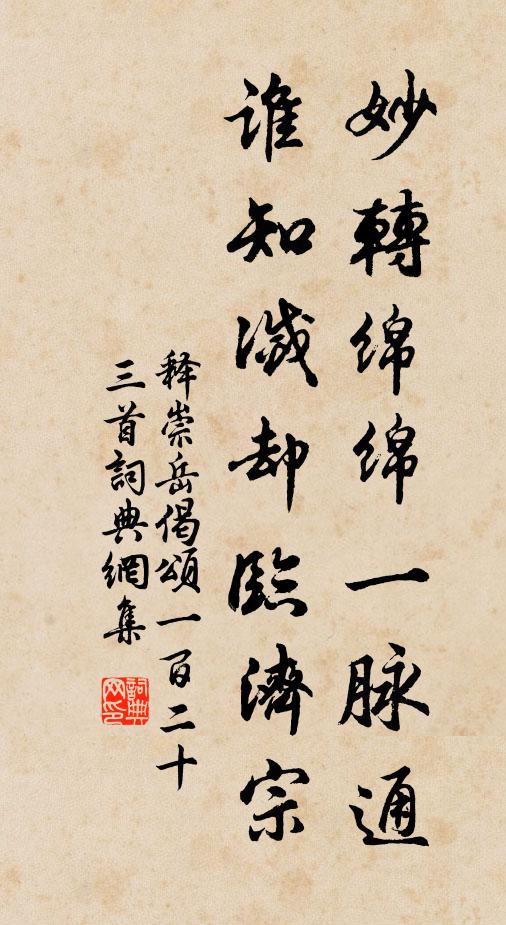 妙轉绵绵一脉通
誰知滅却臨濟宗
释崇岳偈頌一百二十
三首詞典網集
詞典网印